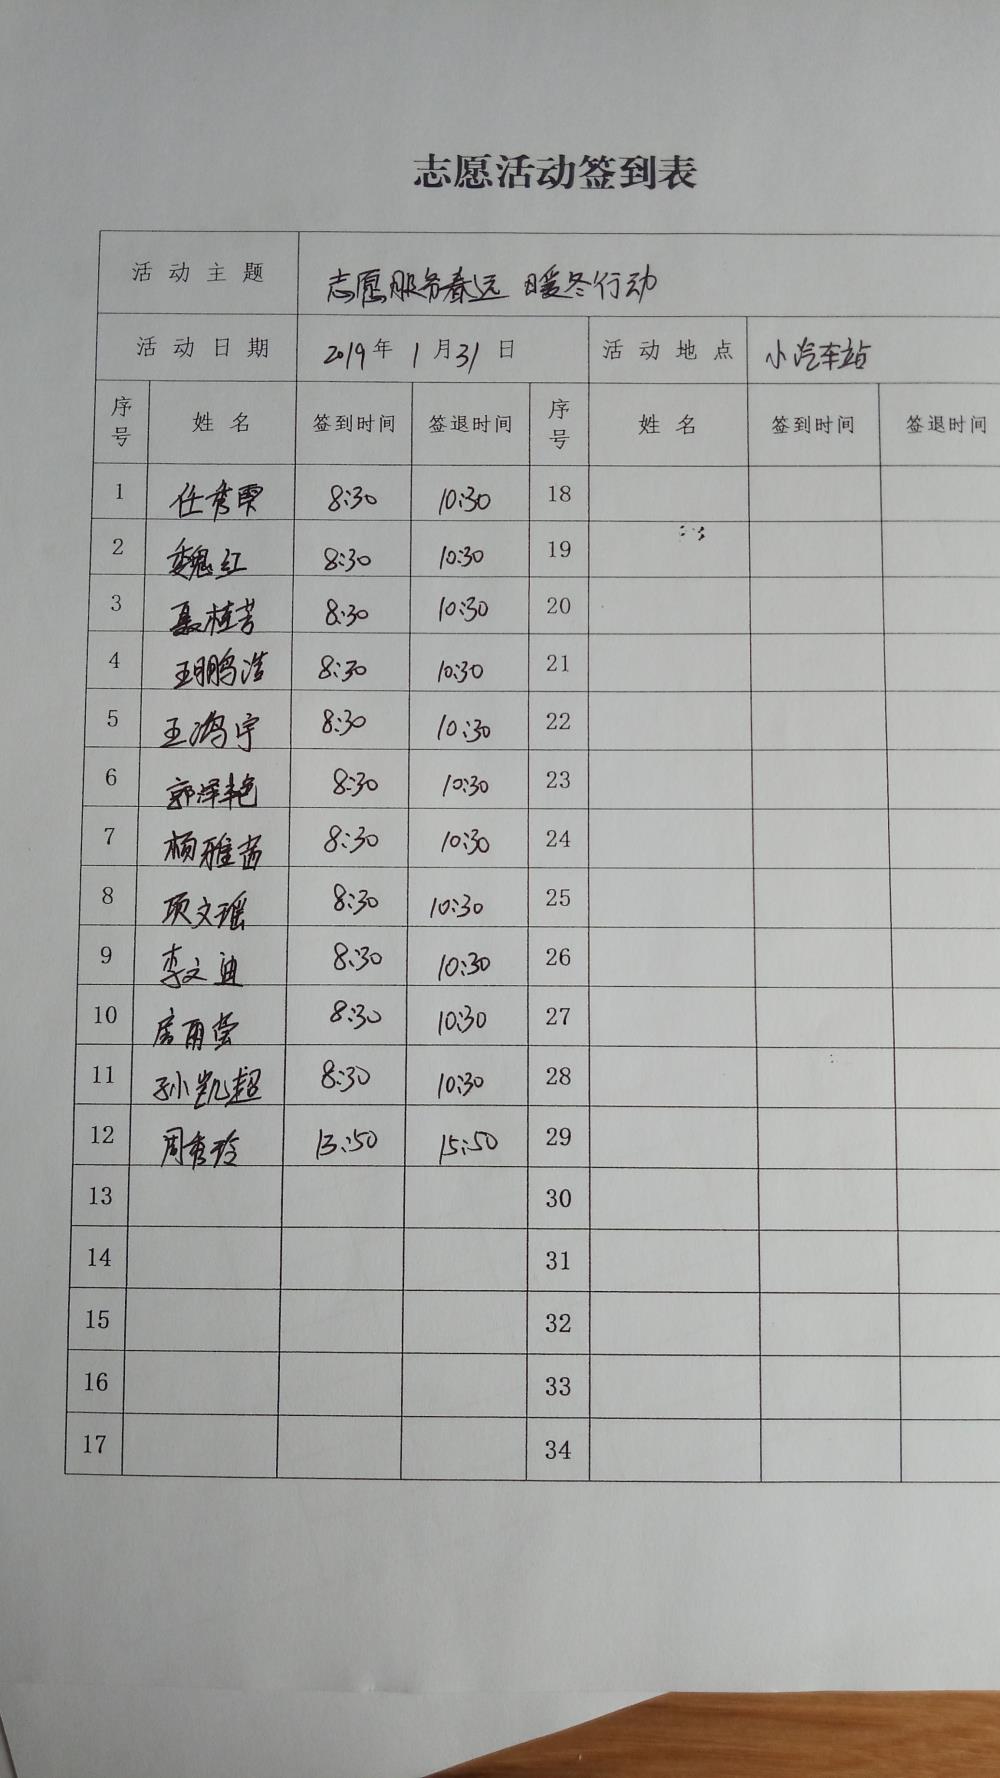 志愿活动签到表
活动主题 志愿服务春运 暖冬行动
活动日期 2019年 1月31日 活动地点 小汽车站
序号 姓名 签到时间 签退时间 序号 姓名 签到时间 签退时间
1 任秀 8:30 10:30 18
2 魏红 8:30 10:30 19
3 聂植芳 8:30 10:30 20
4 王鹏浩 8:30 10:30 21
5 王鸿宇 8:30 10:30 22
6 郭泽艳 8:30 10:30 23
7 杨雅茜 8:30 10:30 24
8 项文瑶 8:30 10:30 25
9 李文迪 8:30 10:30 26
10 8:30 10:30 27
11 孙凯超 8:30 10:30 28
12 周秀玲 13:50 15:50 29
13 30
14 31
15 32
16 33
17 34